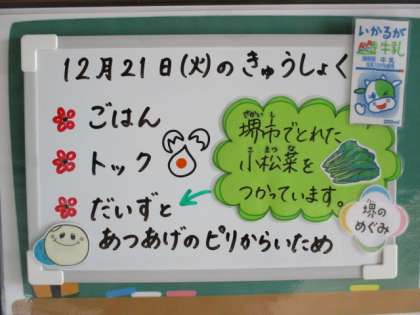 12月21日(火)のきゅうしょく
ごはん
トック
だいずと
あつあげのピリからいため
さかいし
堺市でとれた
こまつな
小松菜を
つかっています。
堺の
めぐみ
いかるが
牛乳